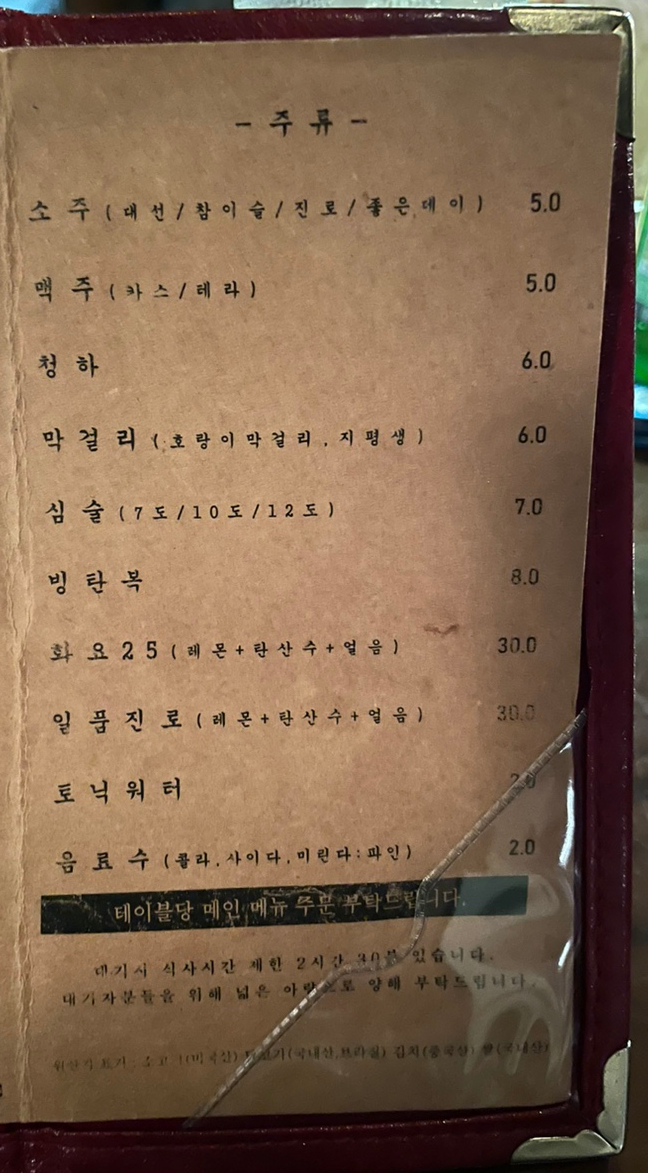 - 주 류 -
소 주 (대선/참이슬/진로/좋은데이) 5.0
맥 주 (카스/테라) 5.0
청 하 6.0
막 걸 리 (호랑이막걸리, 지평생) 6.0
심 술 (7도/10도/12도) 7.0
빙 탄 복 8.0
화 요 2 5 (레몬+탄산수+얼음) 30.0
일 품 진 로 (레몬+탄산수+얼음) 30.0
토 닉 워 터 2.0
음 료 수 (콜라,사이다,미린다:파인) 2.0
테이블당 메인 메뉴 주문 부탁드립니다.
대기시 식사시간 제한 2시간 30분 있습니다.
대기자분들을 위해 넓은 아량으로 양해 부탁드립니다.
원산지 표기 : 소고기(미국산) 닭고기(국내산,브라질) 김치(중국산) 쌀(국내산)